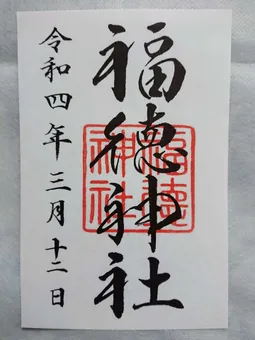 福徳神社
令和四年三月十二日
福徳
神社